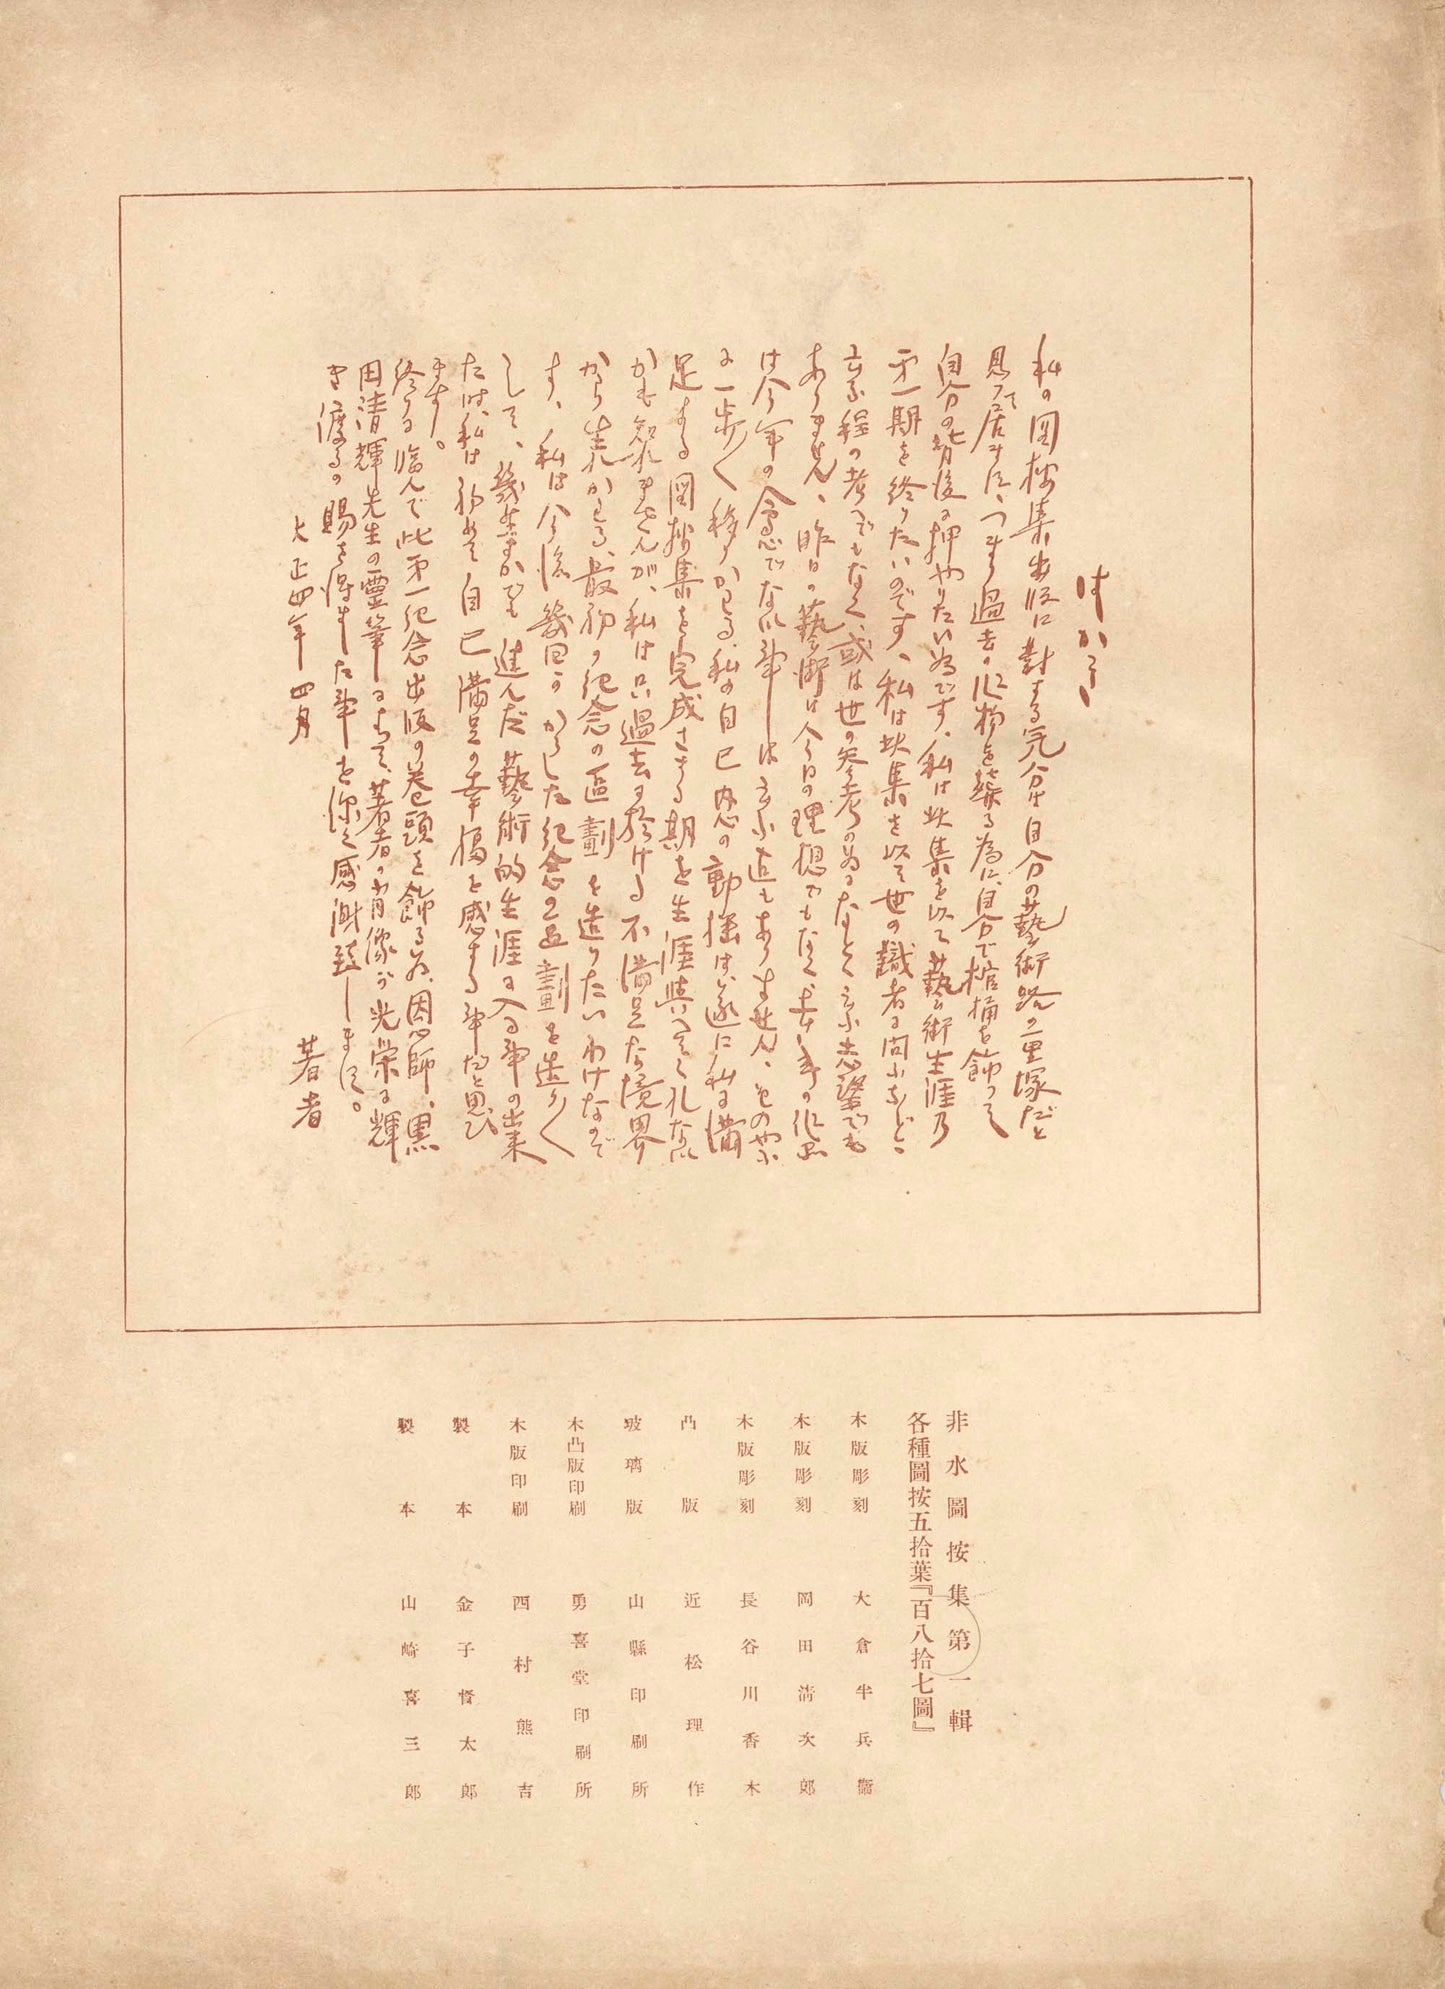 はかきゝ
私の図按集出版に対する気分は自分の藝術路の一里塚だと
思って居ます、つまり過去の作物を葬る為に、自分で棺桶を飾って
自分の背後に押やりたい為です、私は此集を以て藝術生涯乃
第一期を終りたいのです、私は此集を以て世の識者に問ふなどと
云ふ程の考へでもなく、或は世の参考の為になどと云ふ志望でも
ありません、昨日の藝術は今日の理想でもなく、去年の作品
は今年の会心でない事は云ふ迄もありません、その様
に一歩〱移りかわる、私の自己内心の動揺は、遂に私に満
足する図按集を完成さする期を生涯与へてくれない
かも知れませんが、私は只過去に於ける不満足な境界
から生れかわる、最初の紀念の區劃を造りたいわけなので
す、私は今後幾回かかうした紀念の區劃を造り〱
して、幾等かでも進んだ藝術的生涯に入る事の出来
た時、私は初めて自己満足の幸福を感する事だと思ひ
ます。
終りに臨んで此第一紀念出版の巻頭を飾る為、因心師、黒
田清輝先生の靈筆によって、著者の肖像が光栄に輝
き渡るの賜を得ました事を深く感謝致します。
大正四年四月
著者
非水圖按集第一輯
各種圖按五拾葉『百八拾七圖』
木版彫刻 大倉半兵衞
木版彫刻 岡田淸次郎
木版彫刻 長谷川香木
凸版 近松理作
玻璃版 山縣印刷所
木凸版印刷 勇喜堂印刷所
木版印刷 西村熊吉
製本 金子督太郎
製本 山崎喜三郎